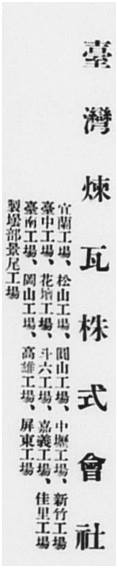 臺灣煉瓦株式會社
宜蘭工場、松山工場、圓山工場、中壢工場、新竹工場
臺中工場、花壇工場、斗六工場、嘉義工場、佳里工場
臺南工場、岡山工場、高雄工場、屏東工場
製坩部景尾工場